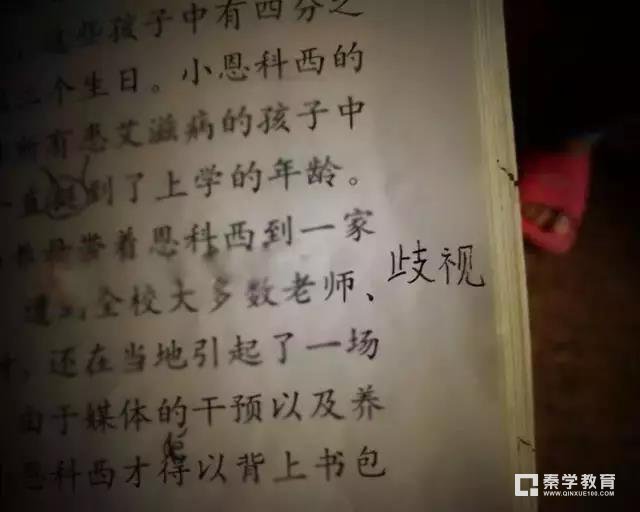 这些孩子中有四分之
三个生日。小恩科西的
所有患艾滋病的孩子中
一直挺到了上学的年龄。
着恩科西到一家
全校大多数老师、
歧视
还在当地引起了一场
由于媒体的干预以及养
小恩科西才得以背上书包
秦学教育
WWW.QINXUE100.COM